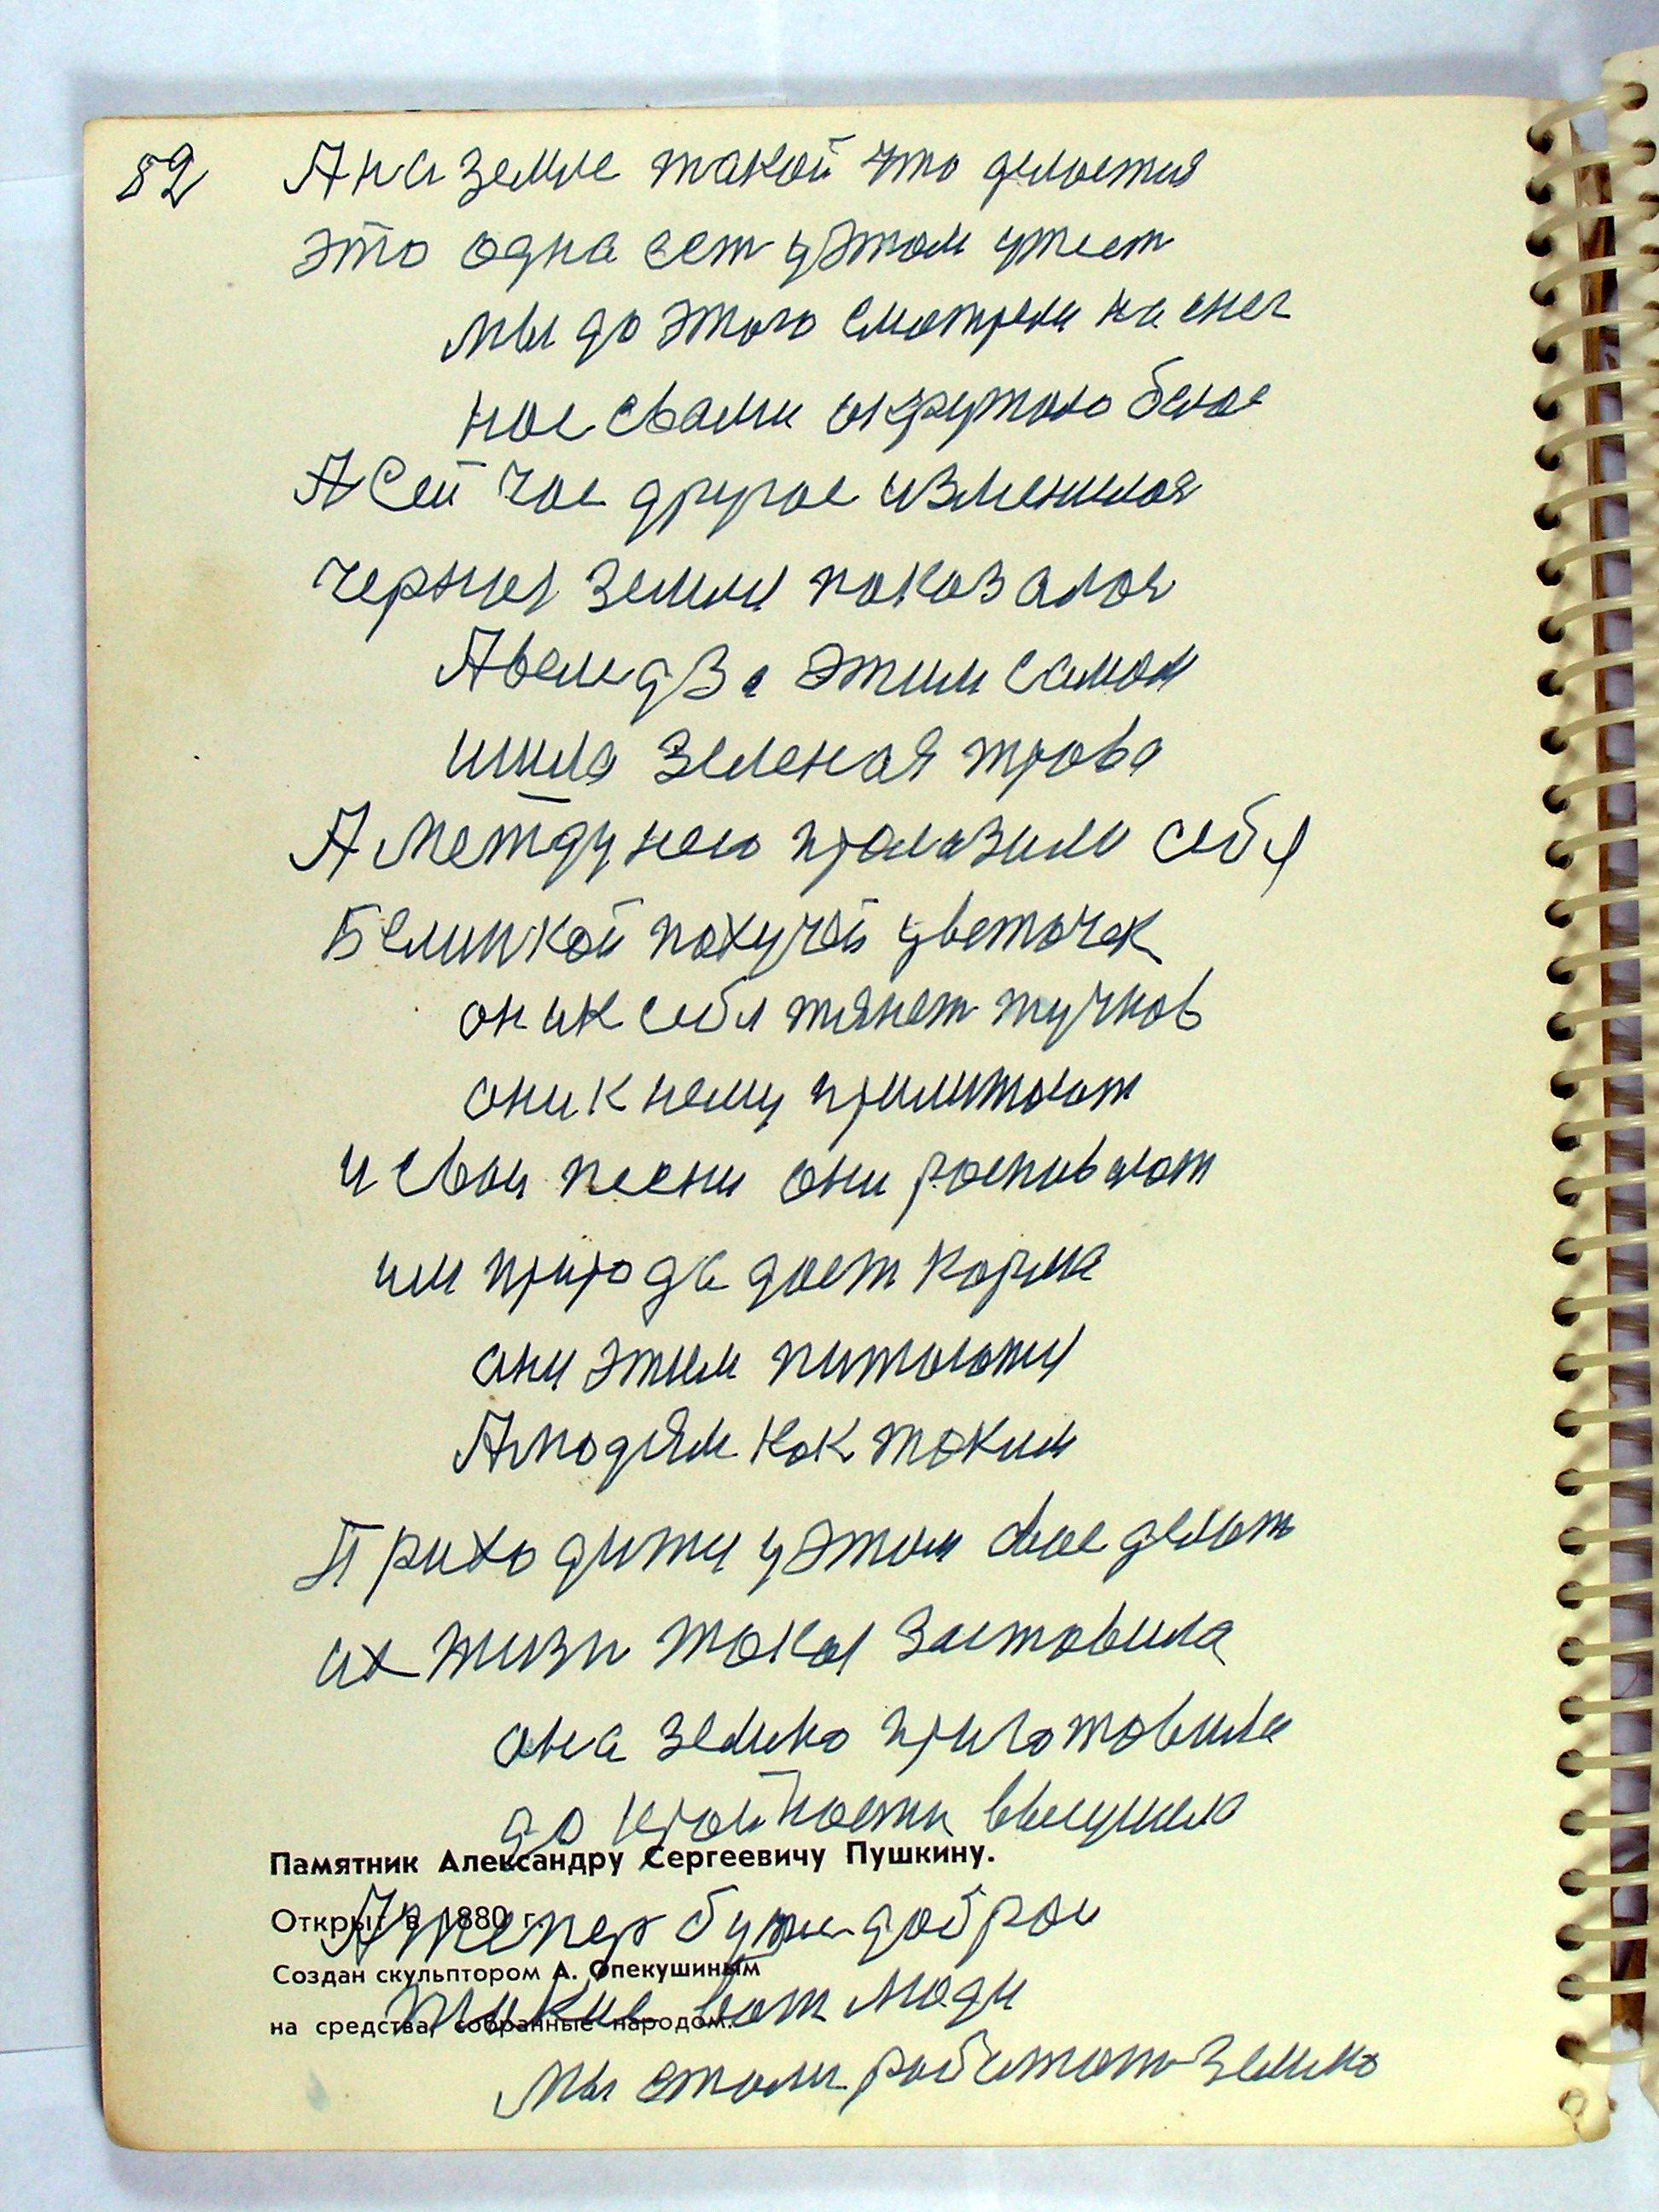 82
А на земле такой что делается
это одна ест у этом ужест
мы до этого смотрели на снег
нас свами окружало белое
А Сей час другое изменилося
черныя земля показалоя
А вслед за этим самом
шила зеленая трова
А между него пролазило себя
Белинкой пахучай цветочек
он ик себя тянет жучков
они к нему прилитают
и свои песни они роспивают
им природа дает корма
они этим питаются
А людям как таким
Приходитя у этом свое делать
их жизн такая заставила
она землю приготовила
до крайности высушела
Памятник Александру Сергеевичу Пушкину.
Открыт в 1880 г.
А тепер будте доброи
Создан скульптором А. Опекушиным
такие вот люди
на средства, собранные народом.
мы стали работать землю